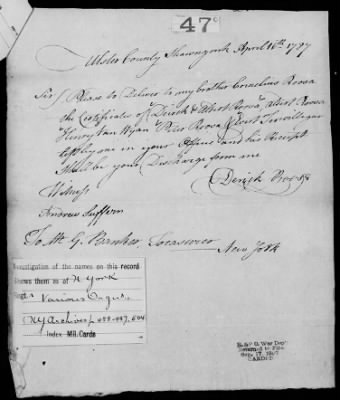 47c
Ulster County Shawangunk April 16th 1787
Sir / Please to Deliver to my brother Cornelius Roosa
the Certificate of Derick & Albert Roosa
Henery Van
left in your Office and his Receipt
Shall be your Discharge from me
Witness
Derick Roosa
Andrew Suffern
To Mr G. Bancker Treasurer
New York
Investigation of the names on this record
shows them as of N York
Regt.s Various Orgs.
(NY Archives p
Index Mil. Cards
R. & P. O. War Dep't
Returned to Files
CARDED